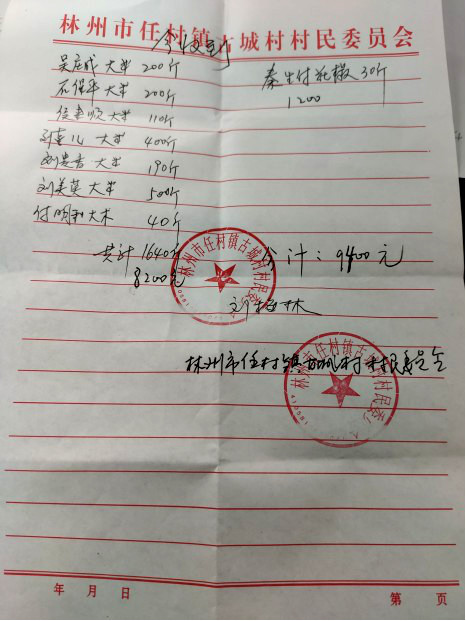 林州市任村镇古城村村民委员会
今收到
吴庄成 大米 200斤
石保平 大米 200斤
位老顺 大米 110斤
刘喜儿 大米 400斤
刘贵香 大米 190斤
刘美英 大米 500斤
付明和 大米 40斤
共计 1640斤
8200元
秦生付 花椒 30斤
1200
合计：9400元
林州市任村镇古城村村民委员会
刘振林
林州市任村镇古城村村民委员会
林州市任村镇古城村村民委员会
年 月 日
第 页